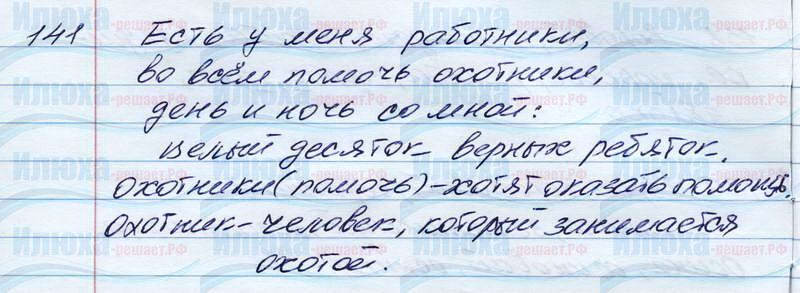 141 Есть у меня работники,
во всём помочь охотники,
день и ночь со мной:
целый десяток верных ребяток.
Охотники (помочь) - хотят оказать помощь.
Охотник - человек, который занимается
охотой.